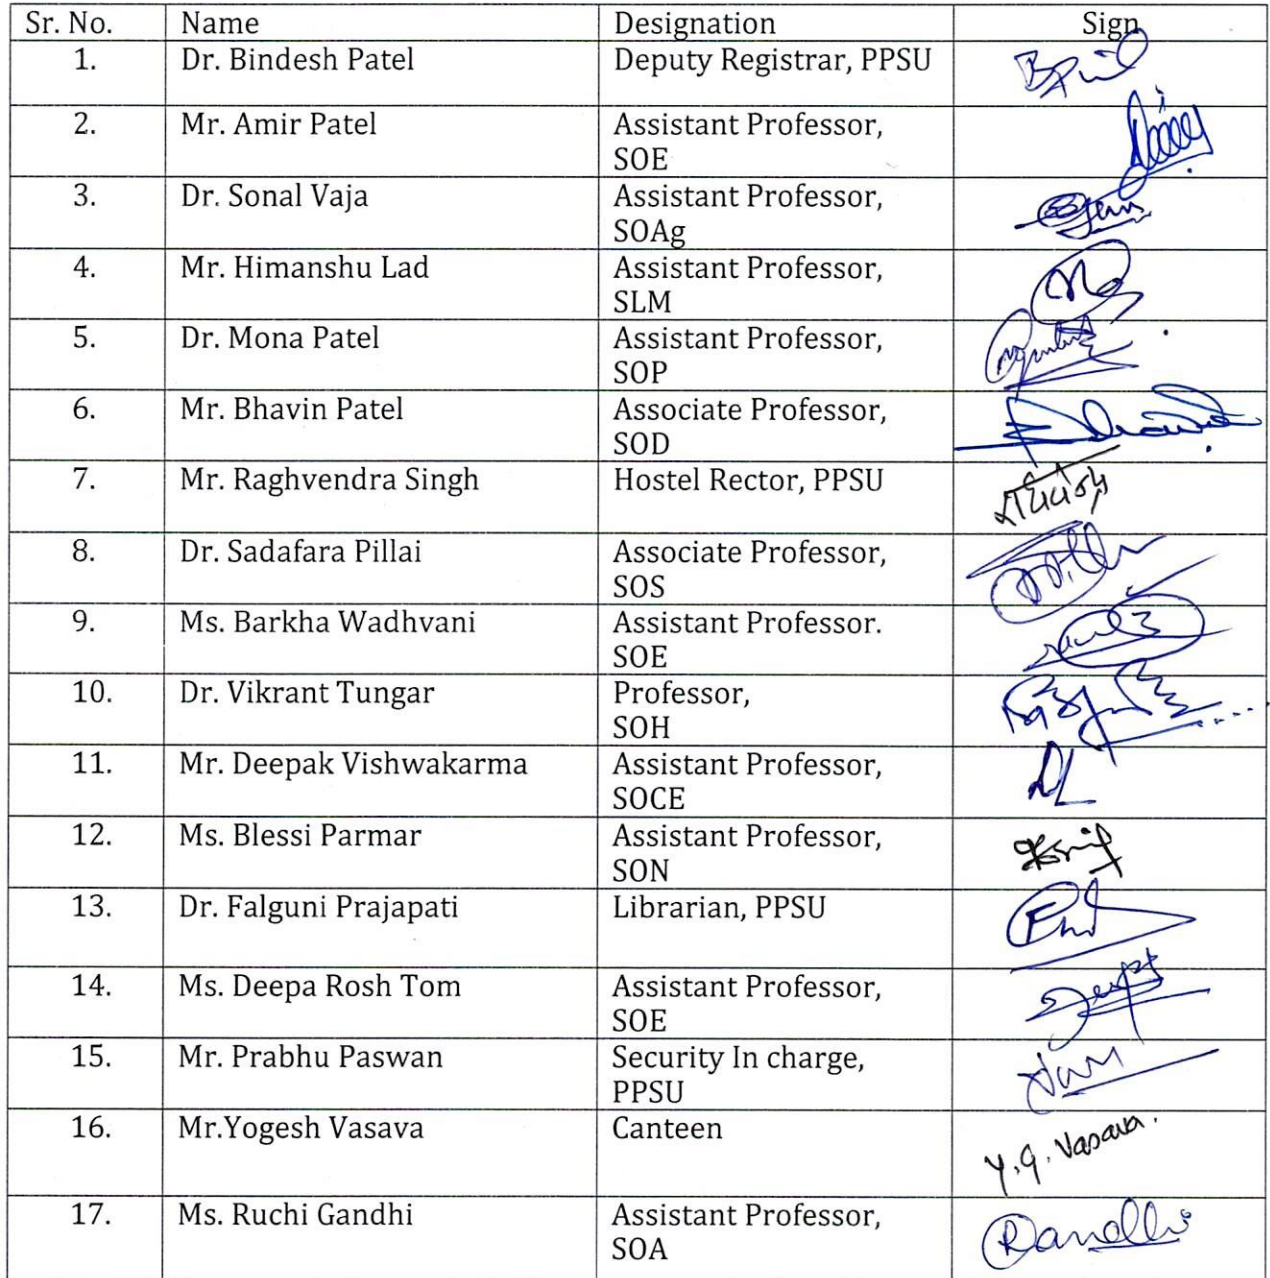 Sr. No. Name Designation Sign
1. Dr. Bindesh Patel Deputy Registrar, PPSU
2. Mr. Amir Patel Assistant Professor,
SOE
3. Dr. Sonal Vaja Assistant Professor,
SOAg
4. Mr. Himanshu Lad Assistant Professor,
SLM
5. Dr. Mona Patel Assistant Professor,
SOP
6. Mr. Bhavin Patel Associate Professor,
SOD
7. Mr. Raghvendra Singh Hostel Rector, PPSU
8. Dr. Sadafara Pillai Associate Professor,
SOS
9. Ms. Barkha Wadhvani Assistant Professor.
SOE
10. Dr. Vikrant Tungar Professor,
SOH
11. Mr. Deepak Vishwakarma Assistant Professor,
SOCE
12. Ms. Blessi Parmar Assistant Professor,
SON
13. Dr. Falguni Prajapati Librarian, PPSU
14. Ms. Deepa Rosh Tom Assistant Professor,
SOE
15. Mr. Prabhu Paswan Security In charge,
PPSU
16. Mr.Yogesh Vasava Canteen Y.G. Vasava.
17. Ms. Ruchi Gandhi Assistant Professor,
SOA